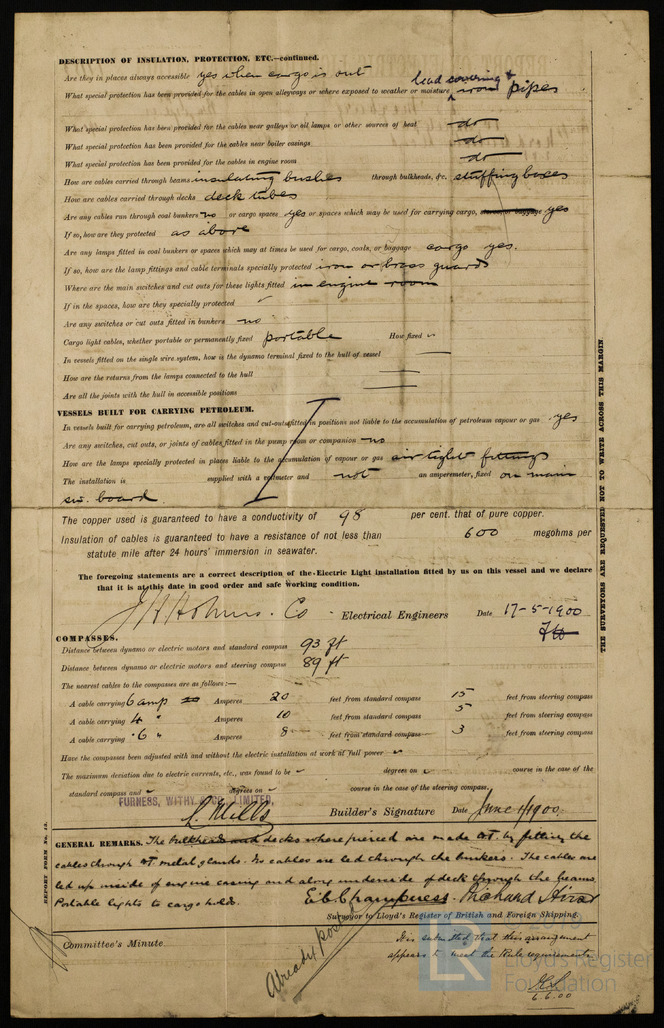 DESCRIPTION OF INSULATION, PROTECTION, ETC.—continued.
Are they in places always accessible yes when cargo is out
lead covering &
What special protection has been provided for the cables in open alleyways or where exposed to weather or moisture iron pipes
What special protection has been provided for the cables near galleys or oil lamps or other sources of heat do
What special protection has been provided for the cables near boiler casings do
What special protection has been provided for the cables in engine room do
How are cables carried through beams insulating bushes through bulkheads, &c. stuffing boxes
How are cables carried through decks deck tubes
Are any cables run through coal bunkers no or cargo spaces yes or spaces which may be used for carrying cargo, stores, or baggage yes
If so, how are they protected as above
Are any lamps fitted in coal bunkers or spaces which may at times be used for cargo, coals, or baggage cargo yes.
If so, how are the lamp fittings and cable terminals specially protected iron or brass guards
Where are the main switches and cut outs for these lights fitted in engine room
If in the spaces, how are they specially protected
Are any switches or cut outs fitted in bunkers no
Cargo light cables, whether portable or permanently fixed portable How fixed
In vessels fitted on the single wire system, how is the dynamo terminal fixed to the hull of vessel
How are the returns from the lamps connected to the hull
Are all the joints with the hull in accessible positions
VESSELS BUILT FOR CARRYING PETROLEUM.
In vessels built for carrying petroleum, are all switches and cut-outs fitted in positions not liable to the accumulation of petroleum vapour or gas yes
Are any switches, cut outs, or joints of cables fitted in the pump room or companion no
How are the lamps specially protected in places liable to the accumulation of vapour or gas air tight fittings
The installation is supplied with a voltmeter and not an amperemeter, fixed on main
sw. board
The copper used is guaranteed to have a conductivity of 98 per cent. that of pure copper.
Insulation of cables is guaranteed to have a resistance of not less than 600 megohms per
statute mile after 24 hours' immersion in seawater.
The foregoing statements are a correct description of the Electric Light installation fitted by us on this vessel and we declare
that it is at this date in good order and safe working condition.
J H Holmes. Co Electrical Engineers Date 17-5-1900
COMPASSES.
Distance between dynamo or electric motors and standard compass 93 ft
Distance between dynamo or electric motors and steering compass 89 ft
The nearest cables to the compasses are as follows:—
A cable carrying 6 amp Amperes 20 feet from standard compass 15 feet from steering compass
A cable carrying 4 " Amperes 10 feet from standard compass 5 feet from steering compass
A cable carrying .6 " Amperes 8 feet from standard compass 3 feet from steering compass
Have the compasses been adjusted with and without the electric installation at work at full power
The maximum deviation due to electric currents, etc., was found to be degrees on course in the case of the
standard compass and degrees on course in the case of the steering compass.
FURNESS, WITHY & CO. LIMITED,
Builder's Signature Date June 1/1900
GENERAL REMARKS. The bulkheads and decks where pierced are made WT. by fitting the
cables through WT metal glands. No cables are led through the bunkers. The cables are
led up inside of engine casing and along underside of deck through the beams
Portable lights to cargo holds.
E. C. Champness. Richard Hirst
Surveyor to Lloyd's Register of British and Foreign Shipping.
Committee's Minute
Already posted
It is submitted that this arrangement
appears to meet the Rule requirements
6.6.00
THE SURVEYORS ARE REQUESTED NOT TO WRITE ACROSS THIS MARGIN
REPORT FORM No. 13.
LR
Lloyd's Register
Foundation